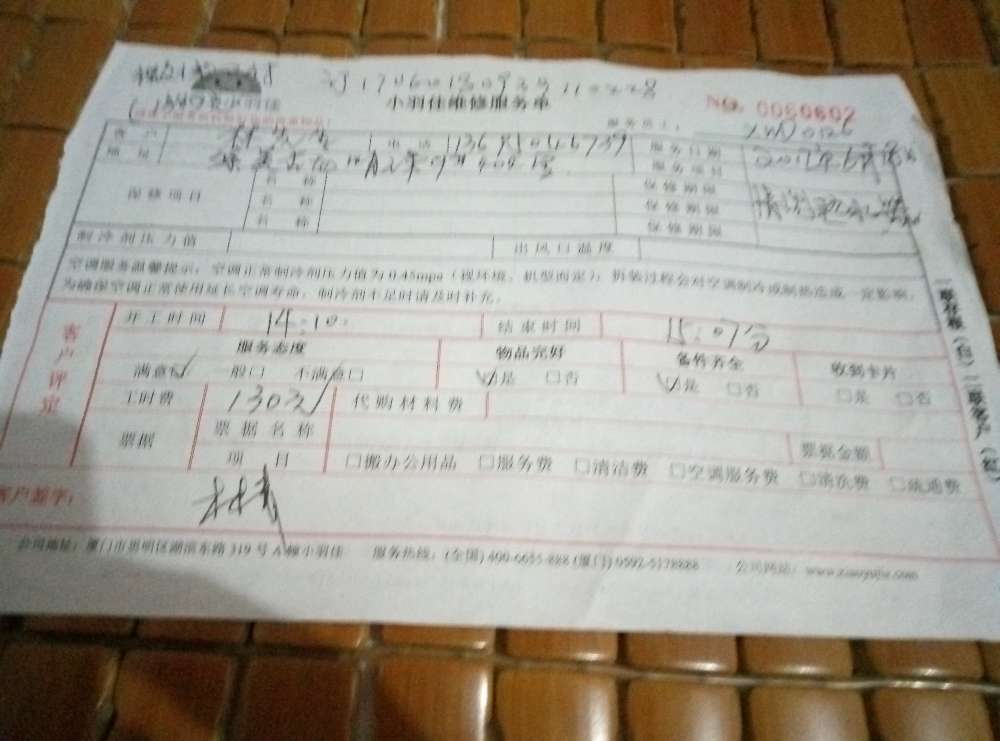 小羽佳维修服务单
NO. 0060602
服务员工: XMD0126
客户 林先生 电话 服务日期
地址 服务项目
保修项目 名称 保修期限
名称 保修期限
名称 保修期限
制冷剂压力值 出风口温度
空调服务温馨提示：空调正常制冷剂压力值为0.45mpa（视环境、机型而定），拆装过程会对空调制冷或制热造成一定影响，
为确保空调正常使用延长空调寿命，制冷剂不足时请及时补充。
客户评定
开工时间 14:10 结束时间 15:07分
服务态度 物品完好 备件齐全 收到卡片
满意☑ 一般□ 不满意□ ☑是 □否 ☑是 □否 □是 □否
工时费 130元 代购材料费
票据 票据名称 票据金额
项目 □搬办公用品 □服务费 □清洁费 □空调服务费 □清洗费 □疏通费
客户签字: 林
公司地址：厦门市思明区湖滨东路319号A幢小羽佳 服务热线：(全国) 400-6655-888 (厦门) 0592-5178888 公司网站：www.xiaoyujia.com
一联存根（白） 二联客户（红）